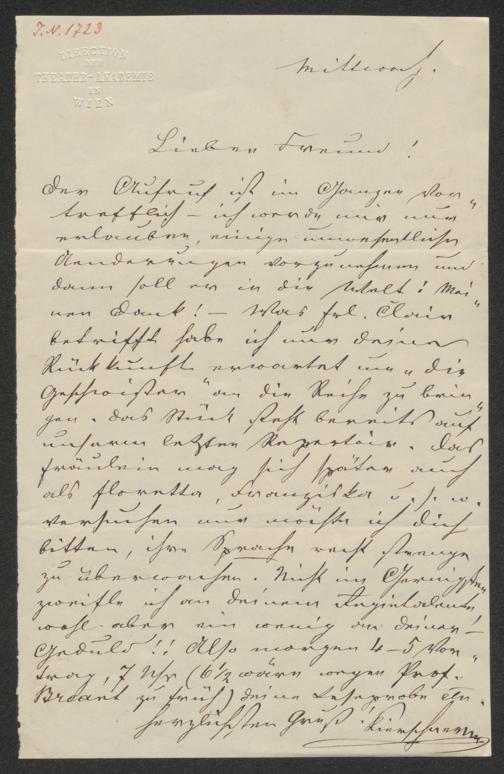 I.N. 1723
DIRECTION
DER
THEATER-AKADEMIE
IN
WIEN
Mittwoch.
Lieber Freund!
Der Aufruf ist im Ganzen vor-
trefflich – ich werde mir nur
erlauben, einige unwesentliche
Aenderungen vorzunehmen und
dann soll er in die Welt! Mei-
nen Dank! – Was Frl. Clair
betrifft habe ich nur deine
Rückkunft erwartet um „die
Geschwister“ an die Reihe zu brin-
gen. Das Stück steht bereits auf
unserm letzten Repertoir. Das
Fräulein mag sich später auch
als Floretta, Franziska u. s. w.
versuchen nur möchte ich dich
bitten, ihre Sprache recht strenge
zu überwachen. Nicht im Geringsten
zweifle ich an deinem Regietalente
wohl aber ein wenig an deiner –
Geduld!! Also morgen 4–5 Vor-
trag, 7 Uhr (6½ wäre wegen Prof.
zu früh) deine Leseprobe
herzlichsten Gruß!